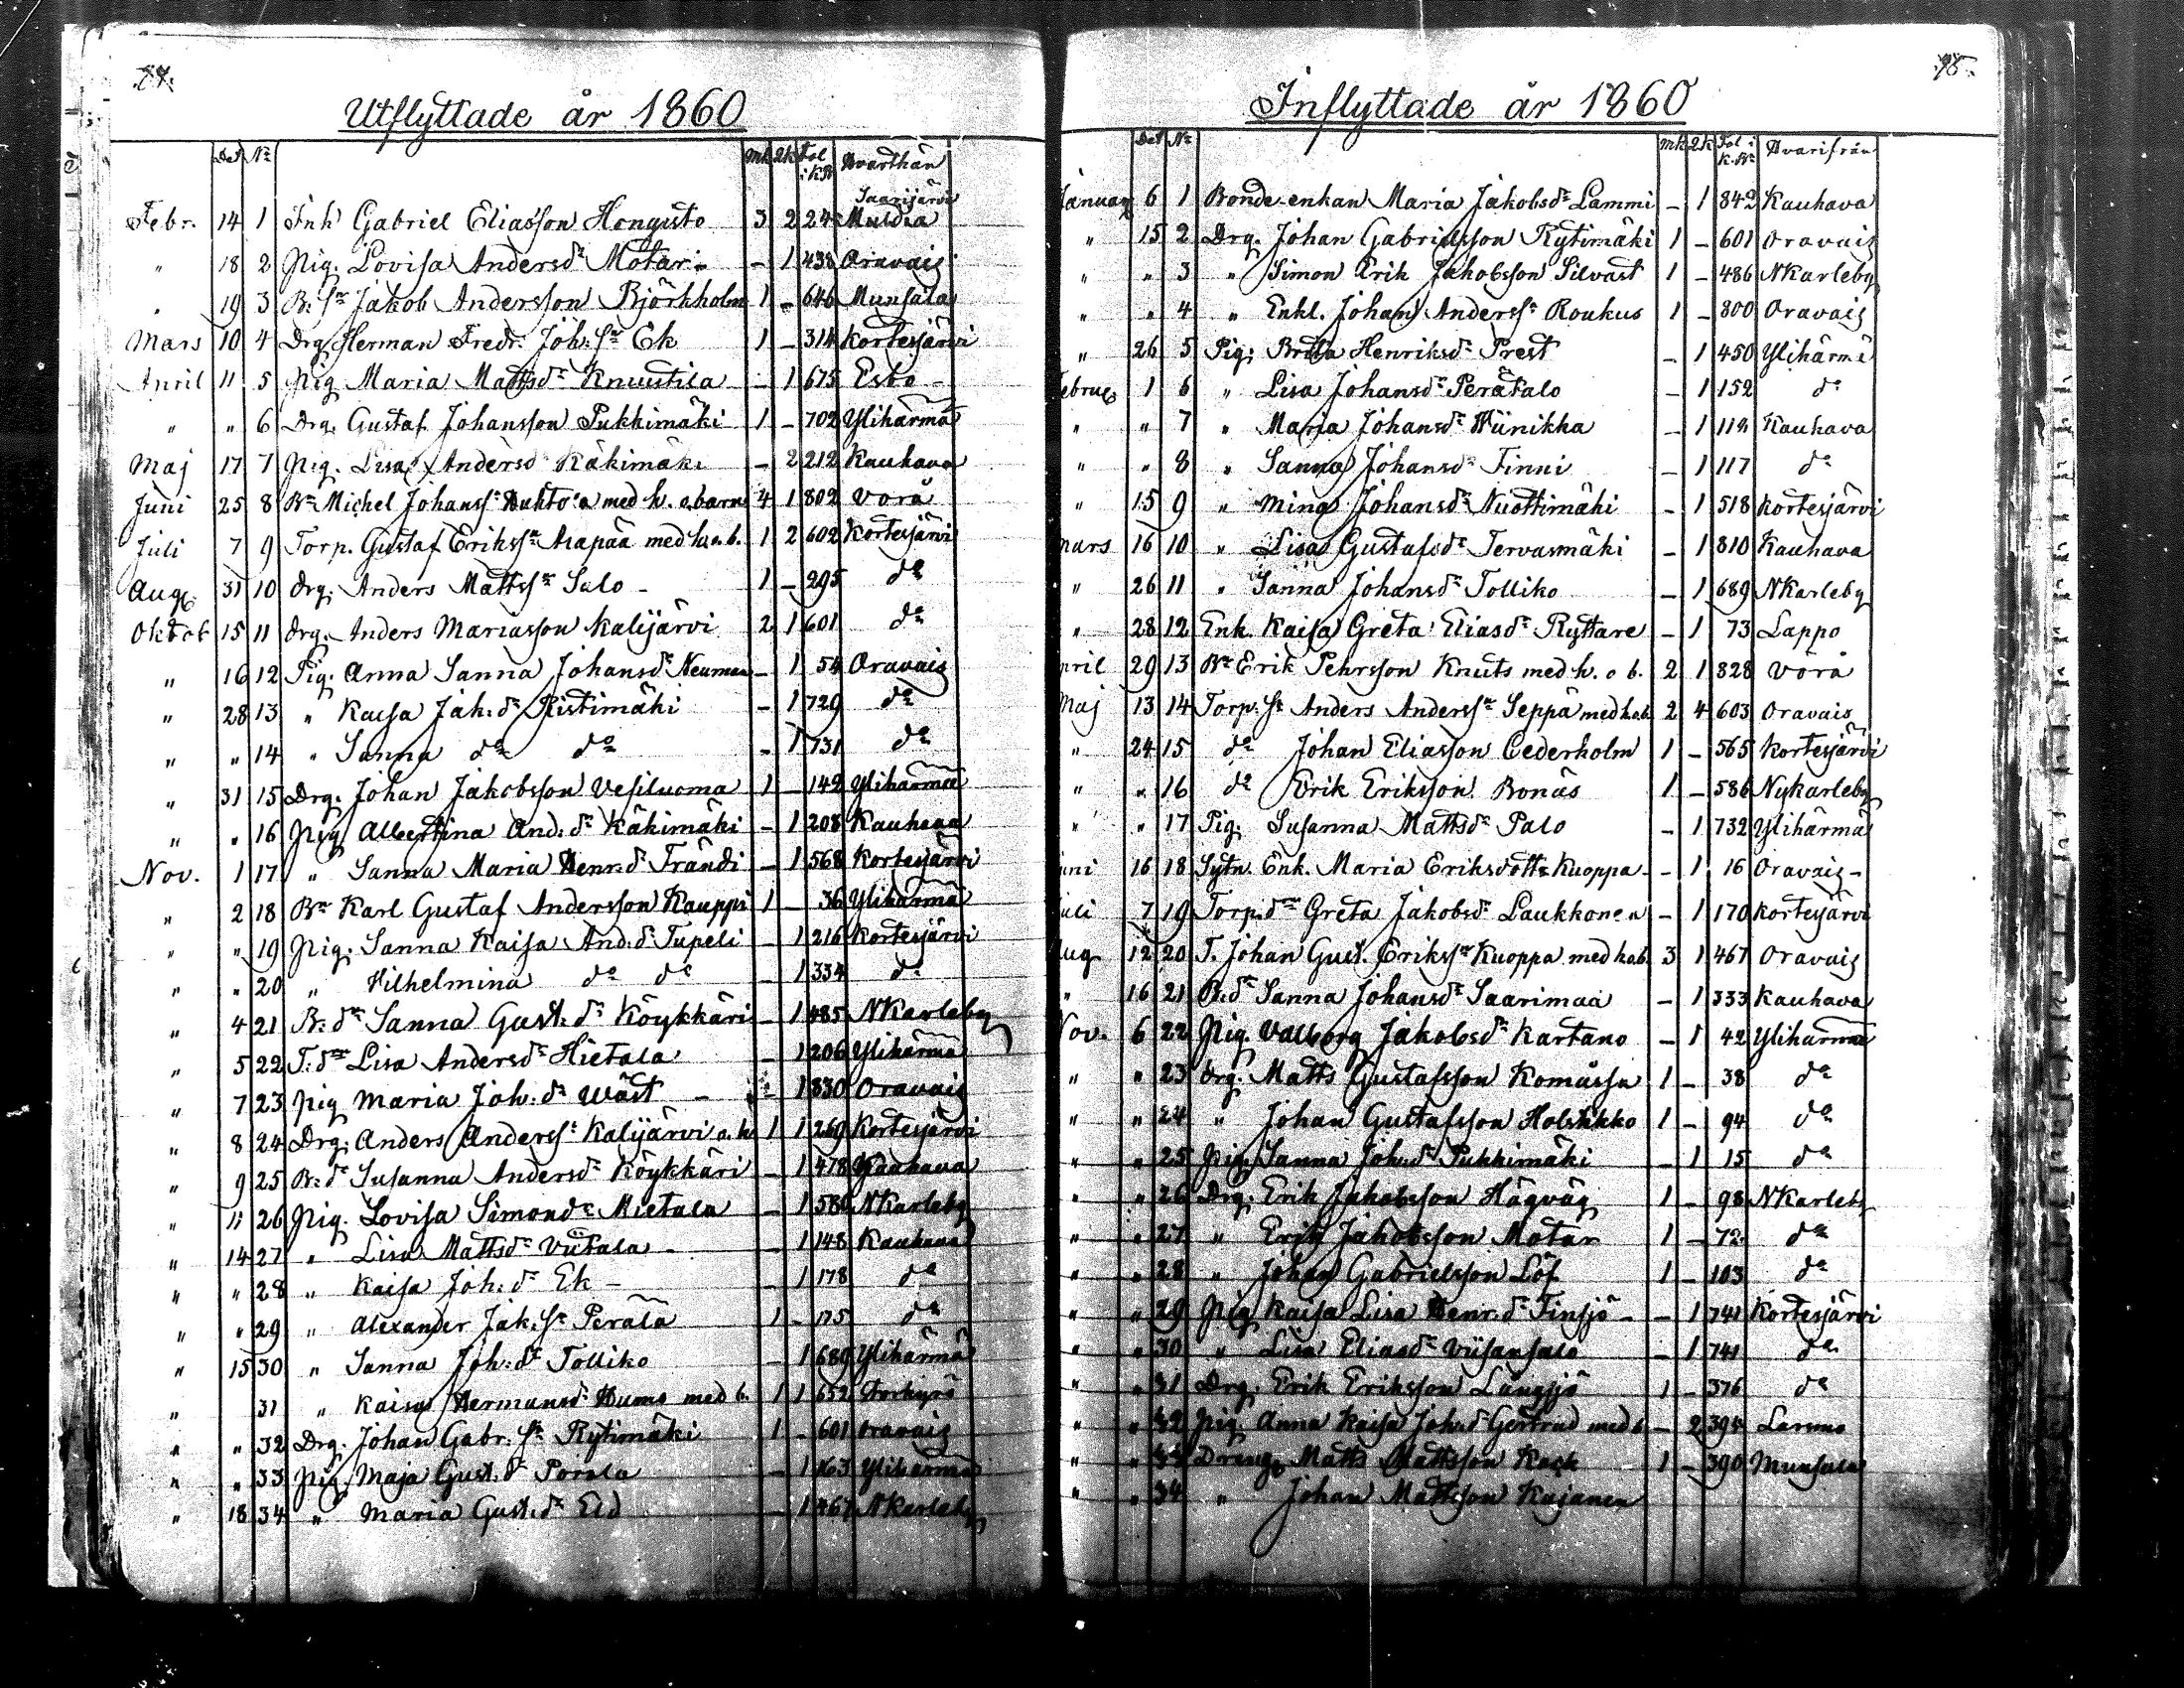 Utflyttade år 1860
Dat No Mk Qk Fol i KB Hvarthän
Febr. 14 1 Inh Gabriel Eliasson Hongisto 3 2 224 Saarijärvi Multia
" 18 2 Pig. Lovisa Andersdr Motar - - 1 438 Oravais
" 19 3 B: Sn Jakob Andersson Björkholm 1 - 646 Munsala
Mars 10 4 Drg Herman Fredr. Joh: Sn Ek 1 - 314 Kortesjärvi
April 11 5 Pig Maria Mattsdr Knuutila - 1 675 Esbo -
" " 6 Drg. Gustaf Johansson Pukkimäki 1 - 702 Ylihärmä
Maj 17 7 Pig. Lisa Andersdr Käkimäki - 2 212 Kauhava
Juni 25 8 Bn Michel Johanssn Huhto'a med h. o. barn 4 1 802 Vörå
Juli 7 9 Torp. Gustaf Erikssn Asapää med h. o. b. 1 2 602 Kortesjärvi
Aug. 31 10 Drg. Anders Mattssn Salo - 1 - 295 do
Oktob 15 11 Drg. Anders Mariasson Kalijärvi 2 1 601 do
" 16 12 Pig. Anna Sanna Johansdr Neuman - 1 54 Oravais
" 28 13 " Kaisa Jak: dr Ristimäki - 1 729 do
" " 14 " Sanna do do - 1 731 do
" 31 15 Drg. Johan Jakobsson Vesiluoma 1 - 142 Ylihärmä
" " 16 Pig Albertina And. dr Käkimäki - 1 208 Kauhava
Nov. 1 17 " Sanna Maria Henr. dr Frändi - 1 568 Kortesjärvi
" 2 18 Bn Karl Gustaf Andersson Kauppi 1 - 36 Ylihärmä
" " 19 Pig. Sanna Kaisa And. dr Tupeli - 1 216 Kortesjärvi
" " 20 " Wilhelmina do do - 1 334 do
" 4 21 B: dr Sanna Gust. dr Köykkäri - 1 485 NKarleby
" 5 22 T: dr Lisa Andersdr Hietala - 1 206 Ylihärmä
" 7 23 Pig Maria Joh: dr Wäst - - 1 830 Oravais
" 8 24 Drg: Anders Anderssn Kalijärvi o. h. 1 1 269 Kortesjärvi
" 9 25 B: dr Susanna Andersdr Köykkäri - 1 478 Kauhava
" 11 26 Pig. Lovisa Simondr Mietala - 1 580 NKarleby
" 14 27 " Lisa Mattsdr Viitala - - 1 148 Kauhava
" " 28 " Kaisa Joh: dr Ek - - 1 178 do
" " 29 " Alexander Jak: Sn Perälä 1 - 175 do
" 15 30 " Sanna Joh: dr Tolliko - 1 689 Ylihärmä
" 31 " Kaisa Hermansdr Hums med b. 1 1 652 Storkyro
" " 32 Drg. Johan Gabr. Sn Rytimäki 1 - 601 Oravais
" " 33 Pig Maja Gust. dr Porala - 1 163 Ylihärmä
" 18 34 " Maria Gust. dr Eld - 1 467 NKarleby
98.
Inflyttade år 1860
Dat No Mk Qk Fol i K.Bn Hvarifrån
Januari 6 1 Bonde-enkan Maria Jakobsdr Lammi - 1 842 Kauhava
" 15 2 Drg. Johan Gabrielsson Rytimäki 1 - 601 Oravais
" " 3 " Simon Erik Jakobsson Silvast 1 - 486 NKarleby
" " 4 " Enkl. Johan Anderssn Roukus 1 - 800 Oravais
" 26 5 Pig: Brita Henriksdr Prest - 1 450 Ylihärmä
Februa 1 6 " Lisa Johansdr Perätalo - 1 152 do
" " 7 " Maria Johansdr Hünikka - 1 114 Kauhava
" " 8 " Sanna Johansdr Finni - 1 117 do
" 15 9 " Mina Johansdr Nuottimäki - 1 518 Kortesjärvi
Mars 16 10 " Lisa Gustafsdr Tervasmäki - 1 810 Kauhava
" 26 11 " Sanna Johansdr Tolliko - 1 689 NKarleby
" 28 12 Enk. Kaisa Greta Eliasdr Ryttare - 1 73 Lappo
April 29 13 Bn Erik Pehrsson Knuts med h. o b. 2 1 828 Vörå
Maj 13 14 Torp. Sn Anders Anderssn Seppä med h.o.b. 2 4 603 Oravais
" 24 15 do Johan Eliasson Cederholm 1 - 565 Kortesjärvi
" " 16 do Erik Eriksson Bonäs 1 - 586 Nykarleby
" " 17 Pig: Susanna Mattsdr Palo - 1 732 Ylihärmä
Juni 16 18 Sytn. Enk. Maria Eriksdottr Kuoppa - - 1 16 Oravais -
Juli 7 19 Torp. dr Greta Jakobsdr Laukkonen - 1 170 Kortesjärvi
Aug 12 20 T. Johan Gust. Erikssn Kuoppa med h.o.b. 3 1 467 Oravais
" 16 21 B: dr Sanna Johansdr Saarimaa - 1 333 Kauhava
Nov. 6 22 Pig. Valborg Jakobsdr Kartano - 1 42 Ylihärmä
" " 23 Drg. Matts Gustafsson Komässa 1 - 38 do
" " 24 " Johan Gustafsson Holstikko 1 - 94 do
" " 25 Pig. Sanna Joh: dr Pukkimäki - 1 15 do
" " 26 Drg. Erik Jakobsson Hägväg 1 - 98 NKarleby
" " 27 " Erik Jakobsson Motar 1 - 72 do
" " 28 " Johan Gabrielsson Löf 1 - 103 do
" " 29 Pig Kaisa Lisa Henr. dr Finsjö - - 1 741 Kortesjärvi
" " 30 " Lisa Eliasdr Viisansalo - 1 741 do
" " 31 Drg. Erik Eriksson Långsjö 1 - 376 do
" " 32 Pig. Anna Kaisa Joh. dr Gertrud med b - 2 398 Larsmo
" " 33 Dräng Matts Mattsson Kack 1 - 390 Munsala
" " 34 " Johan Mattsson Kajanen